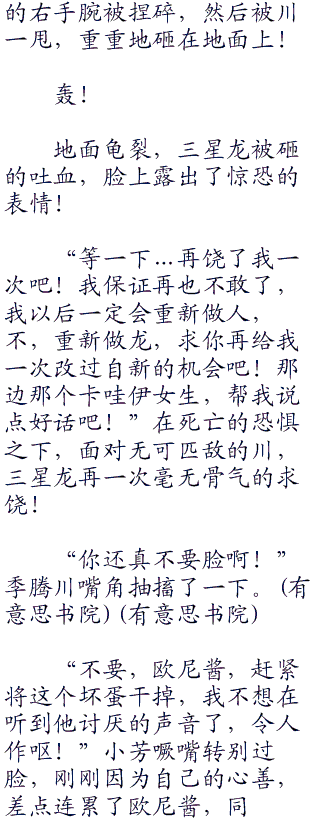 的右手腕被捏碎，然后被川
一甩，重重地砸在地面上！
轰！
地面龟裂，三星龙被砸
的吐血，脸上露出了惊恐的
表情！
“等一下...再饶了我一
次吧！我保证再也不敢了，
我以后一定会重新做人，
不，重新做龙，求你再给我
一次改过自新的机会吧！那
边那个卡哇伊女生，帮我说
点好话吧！”在死亡的恐惧
之下，面对无可匹敌的川，
三星龙再一次毫无骨气的求
饶！
“你还真不要脸啊！”
季腾川嘴角抽搐了一下。(有
意思书院)(有意思书院)
“不要，欧尼酱，赶紧
将这个坏蛋干掉，我不想在
听到他讨厌的声音了，令人
作呕！”小芳噘嘴转别过
脸，刚刚因为自己的心善，
差点连累了欧尼酱，同